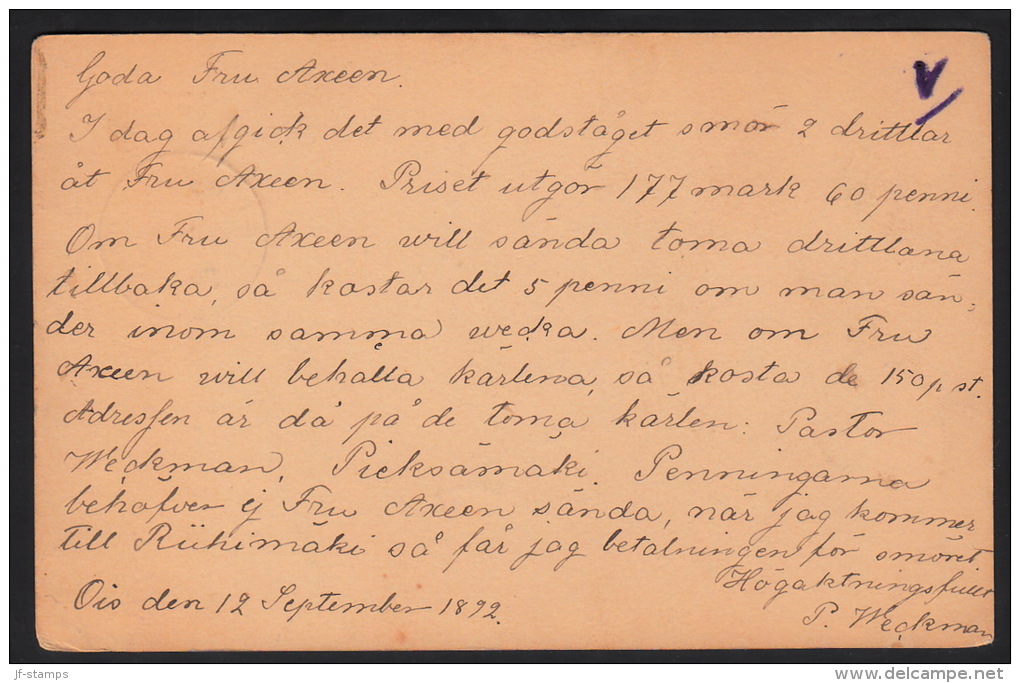 Goda Fru Axeen.
V
I dag afgick det med godståget smör 2 drittlar
åt Fru Axeen. Priset utgör 177 mark 60 penni.
Om Fru Axeen will sända toma drittlarna
tillbaka, så kostar det 5 penni om man sän-
der inom samma wecka. Men om Fru
Axeen will behålla kärlena, så kosta de 150 p st.
Adressen är då på de toma kärlen: Pastor
Weckman, Pieksämäki. Penningarna
behöfver ej Fru Axeen sända, när jag kommer
till Riihimäki så får jag betalningen för smöret.
Högaktningsfullt
Ois den 12 September 1892.
P. Weckman
jf-stamps
www.delcampe.net